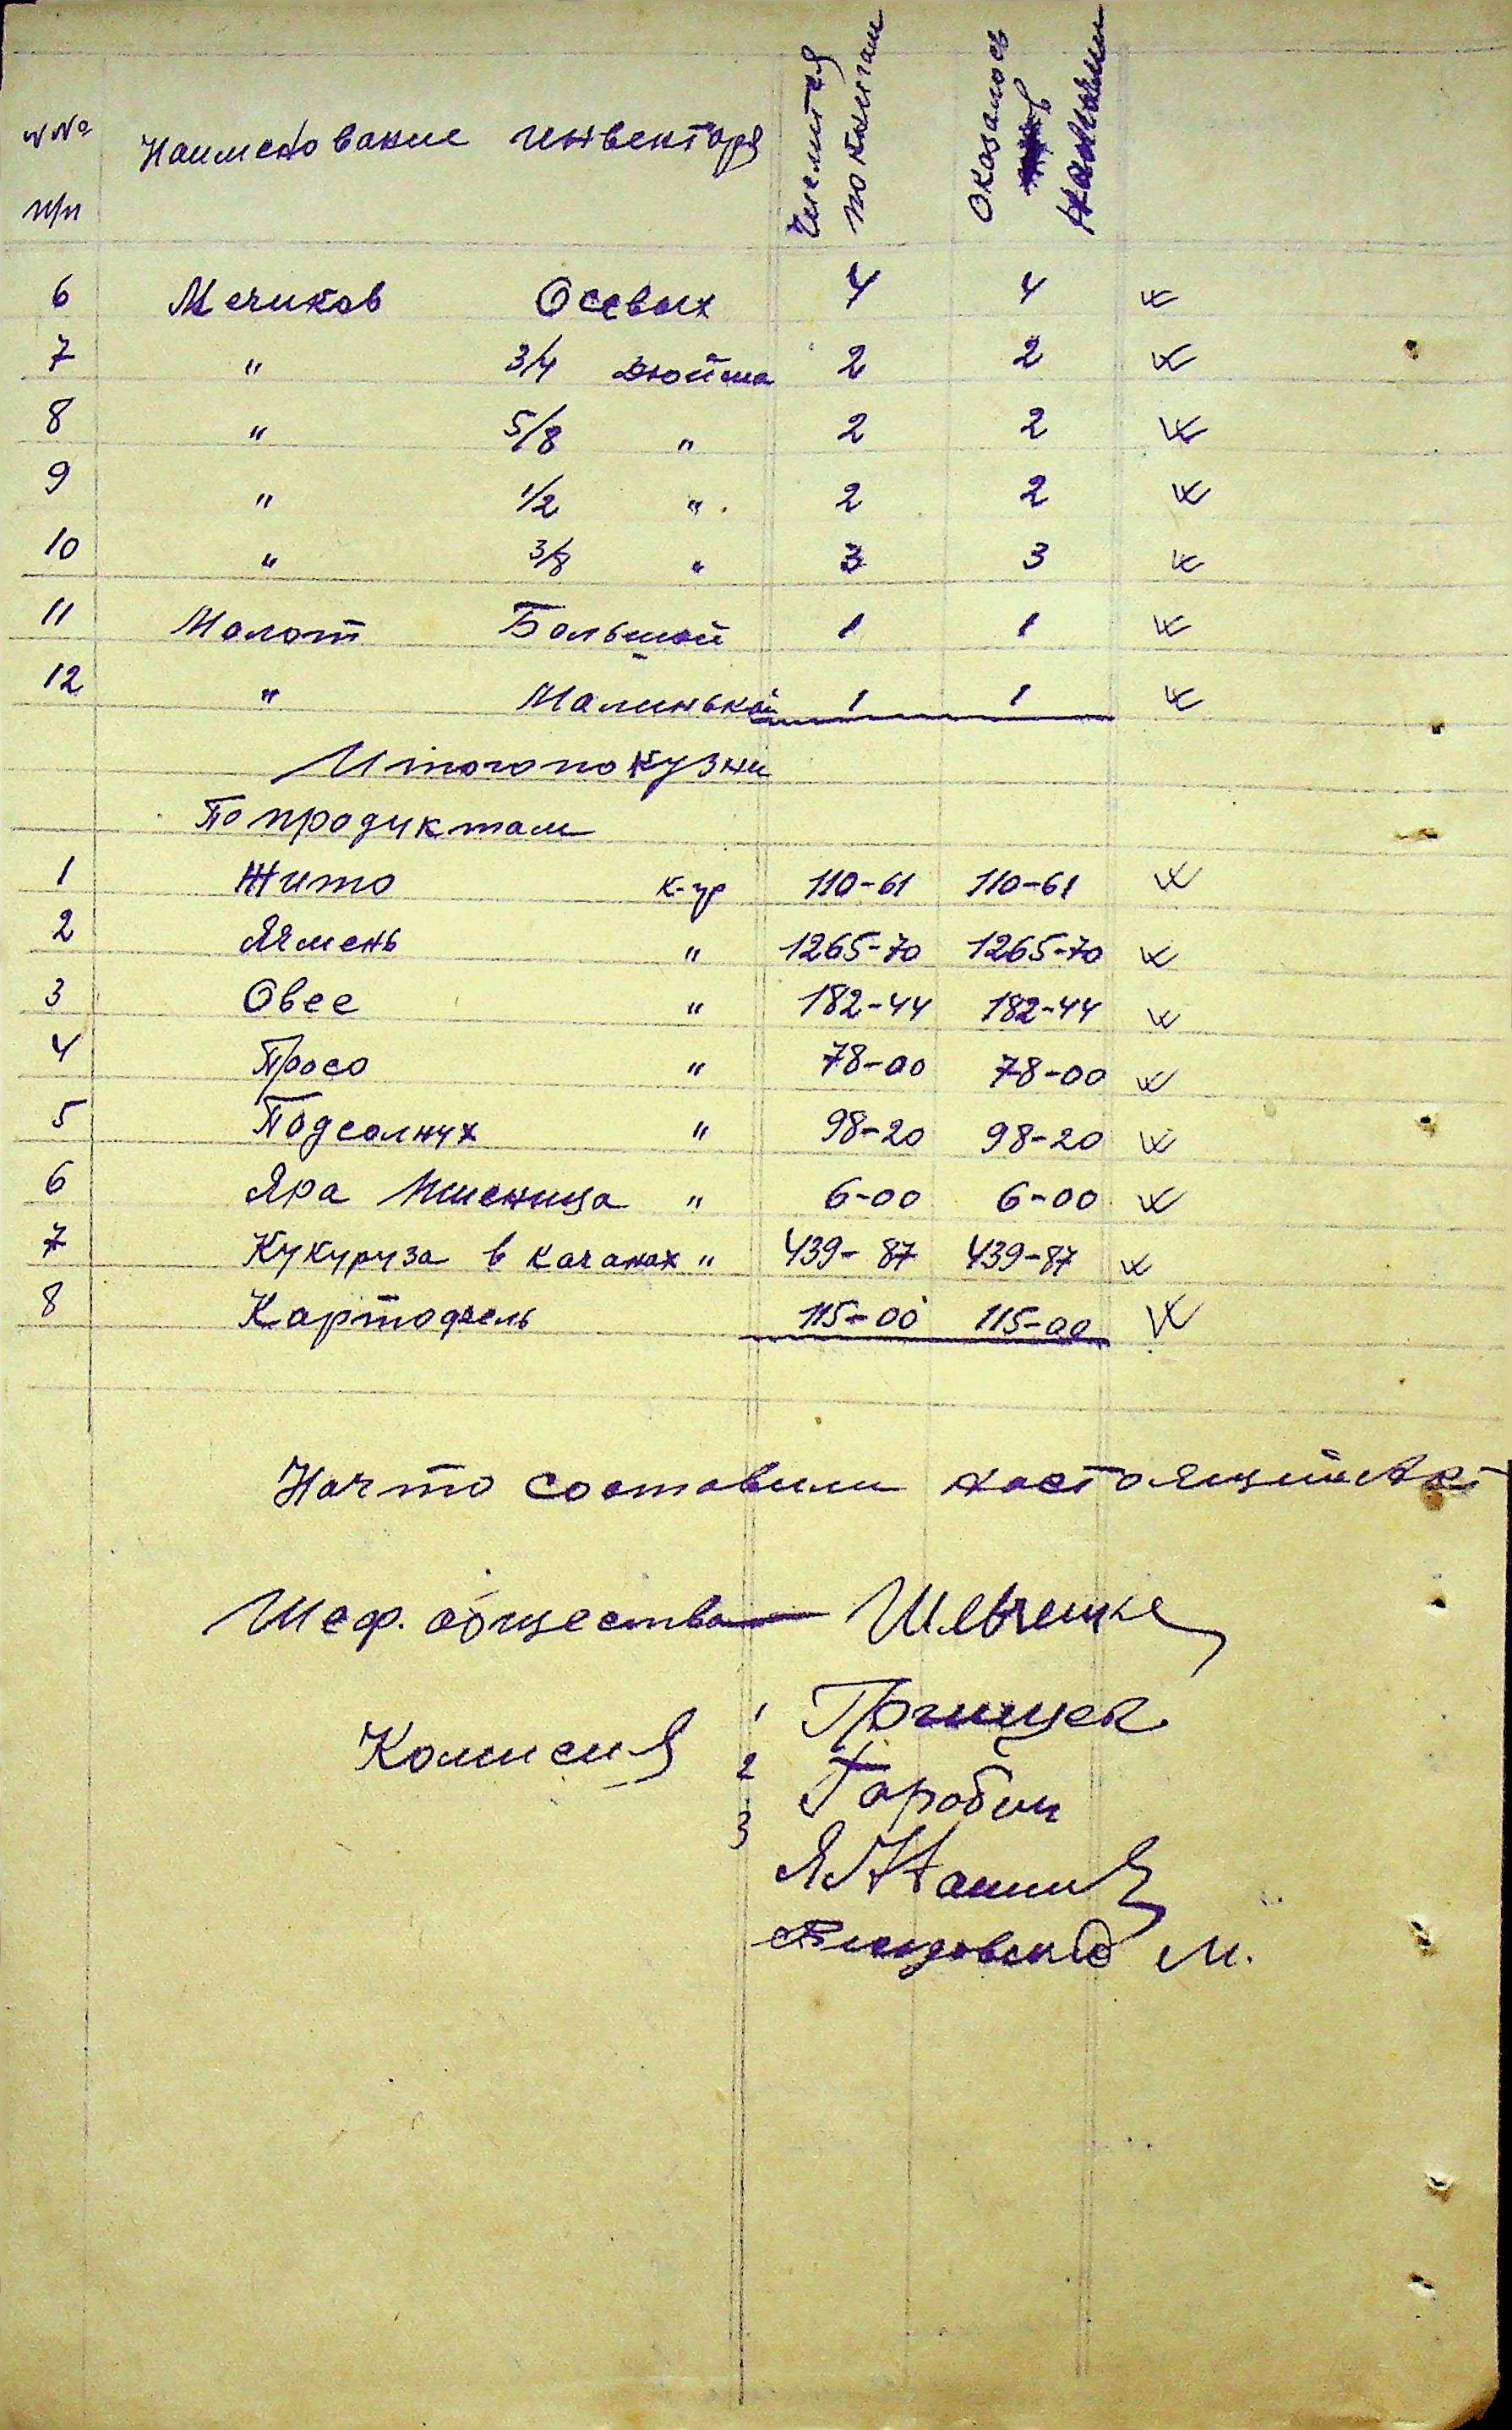 №№ п/п Наименование инвентаря Числится по книгам Оказалось в наличии
6 Мечиков Осевых 4 4
7 " 3/4 Дюйма 2 2
8 " 5/8 " 2 2
9 " 1/2 " 2 2
10 " 3/8 " 3 3
11 Молот Большой 1 1
12 " Малинькой 1 1
Итого по кузни
По продуктам
1 Жито к-гр 110-61 110-61
2 Ячмень " 1265-70 1265-70
3 Овес " 182-44 182-44
4 Просо " 78-00 78-00
5 Подсолнух " 98-20 98-20
6 Яра Пшеница " 6-00 6-00
7 Кукуруза в качанах " 439-87 439-87
8 Картофель 115-00 115-00
На что составили настоящий Акт
Шеф. общества Шевченко
Комисия 1
2
3
М.